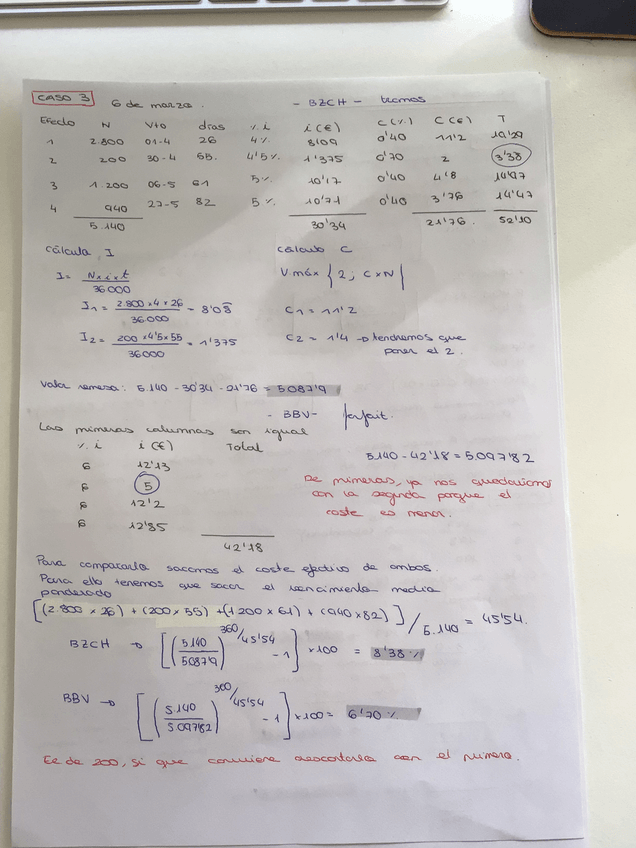 CASO 3 6 de marzo. - BZCH - tramos
Efecto N Vto días % i i (€) C (%) C (€) T
1 2.800 01-4 26 4% 8'09 0'40 11'2 19'29
2 200 30-4 55. 4'5%. 1'375 0'70 2 3'38
3 1.200 06-5 61 5%. 10'17 0'40 4'8 14'97
4 940 27-5 82 5%. 10'71 0'40 3'76 14'47
5.140 30'34 21'76. 52'10
Cálculo I cálculo C
I = N x i x t / 36000
V máx { 2; C x N }
I1 = 2.800 x 4 x 26 / 36.000 = 8'08 C1 = 11'2
I2 = 200 x 4'5 x 55 / 36000 = 1'375 C2 = 1'4 → tendremos que
poner el 2.
Valor remesa: 5.140 - 30'34 - 21'76 = 5.087'9
- BBV - forfait.
Las primeras columnas son igual
% i i (€) Total 5.140 - 42'18 = 5.097'82
6 12'13
6 5
6 12'2
6 12'85
42'18
De primeras, ya nos quedaríamos
con la segunda porque el
coste es menor.
Para compararla sacamos el coste efectivo de ambos.
Para ello tenemos que sacar el vencimiento medio
ponderado
[(2.800 x 26) + (200 x 55) + (1.200 x 61) + (940 x 82)] / 5.140 = 45'54.
BZCH → [(5.140 / 5087'9)^360/45'54 - 1] x 100 = 8'38 %
BBV → [(5.140 / 5.097'82)^360/45'54 - 1] x 100 = 6'70 %.
de 200, si que conviene descontarla con el primero.